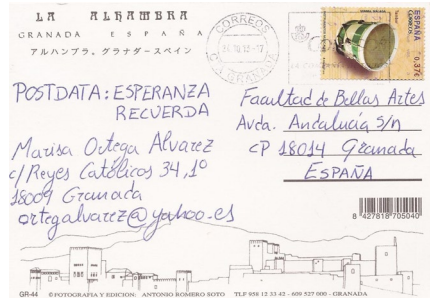 LA ALHAMBRA
GRANADA ESPAÑA
アルハンブラ。グラナダースペイン
CORREOS
GRANADA
ESPAÑA
CORREOS
0,37€
POSTDATA: ESPERANZA
RECUERDA
Marisa Ortega Alvarez
c/Reyes Católicos 34, 1º
18009 Granada
ortegalvarez@yahoo.es
Facultad de Bellas Artes
Avda. Andalucía s/n
CP 18014 Granada
ESPAÑA
8 427818 705040
GR-44 © FOTOGRAFIA Y EDICION: ANTONIO ROMERO SOTO TLF 958 12 33 42 - 609 527 000 - GRANADA